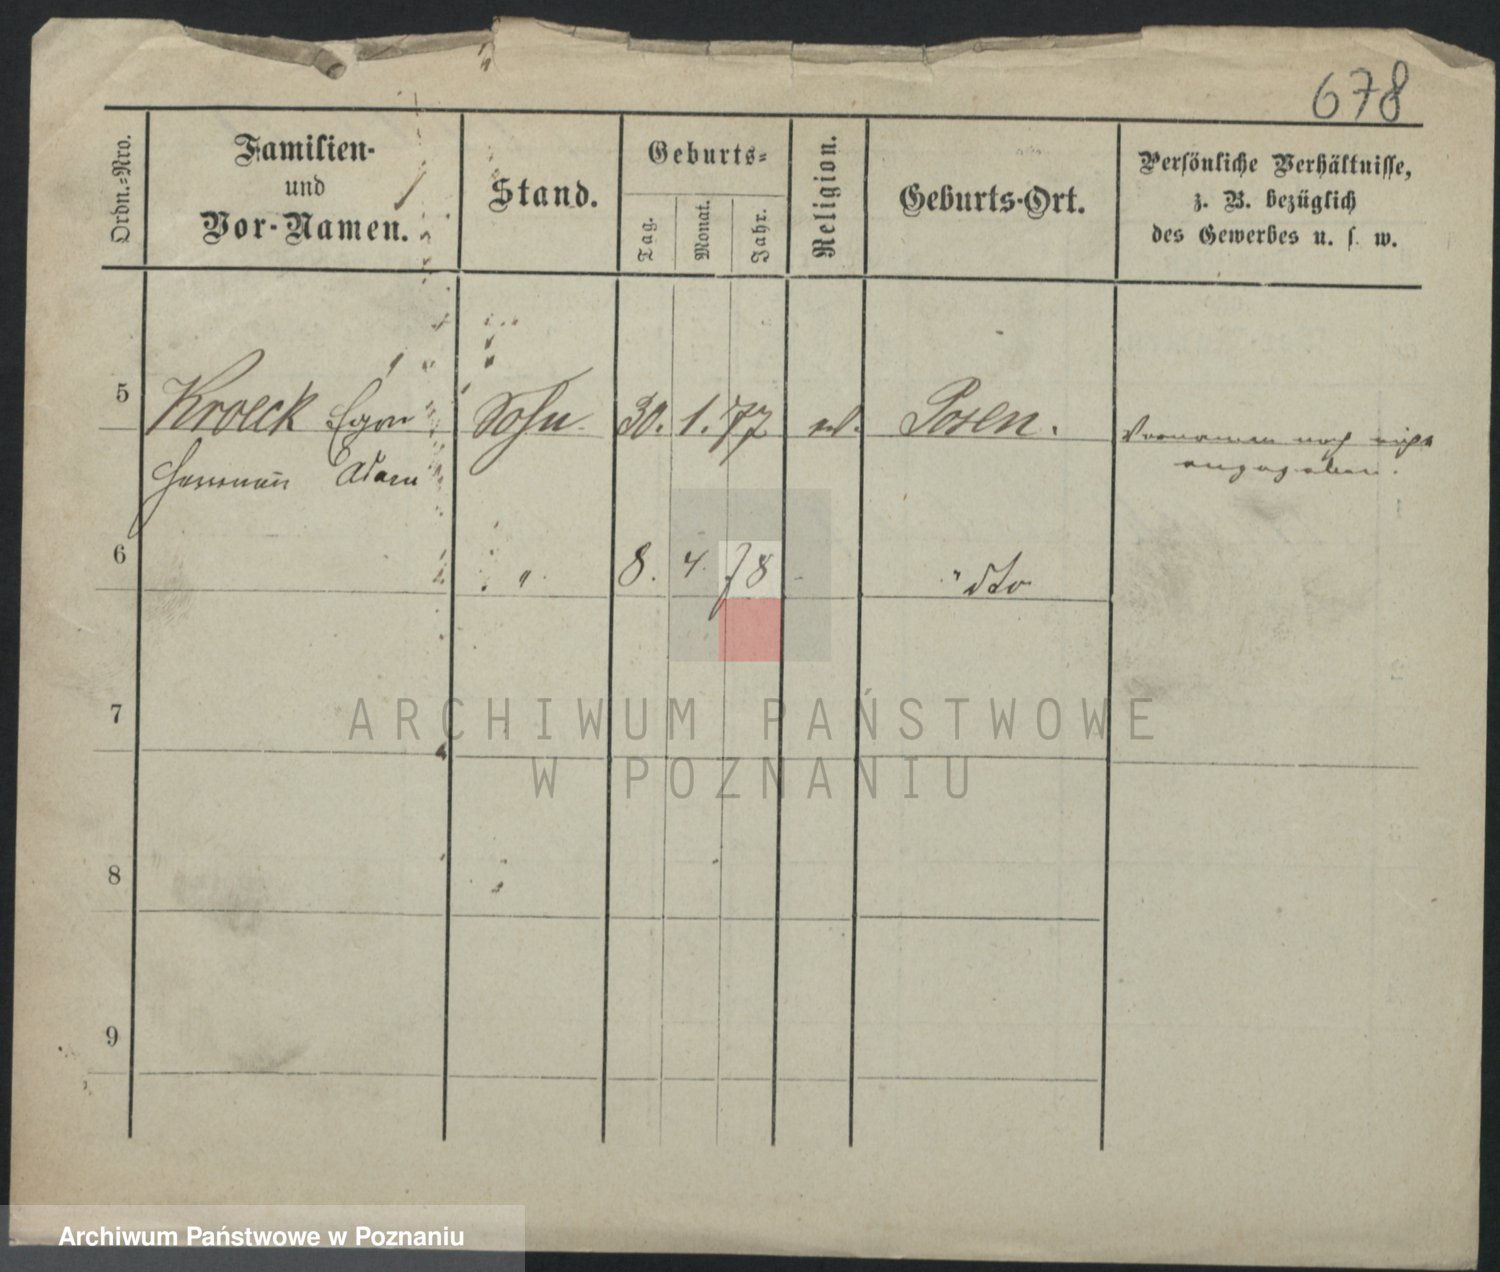 678
Ordn.-Nro.
Familien-
und
Vor-Namen.
Stand.
Geburts-
Tag.
Monat.
Jahr.
Religion.
Geburts-Ort.
Persönliche Verhältnisse,
z. B. bezüglich
des Gewerbes u. s. w.
5 Kroeck Egon Sohn 30. 1. 77 Posen.
Hermann Adam
Vornamen noch nicht
angegeben.
6 " 8. 4. 78 - " dto
7
8
9
ARCHIWUM PAŃSTWOWE
W POZNANIU
Archiwum Państwowe w Poznaniu